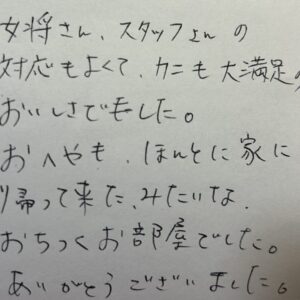 女将さん、スタッフさんの
対応もよくて、カニも大満足の
おいしさでました。
おへやも、ほんとに家に
帰って来た、みたいな、
おちつくお部屋でした。
ありがとうございました。